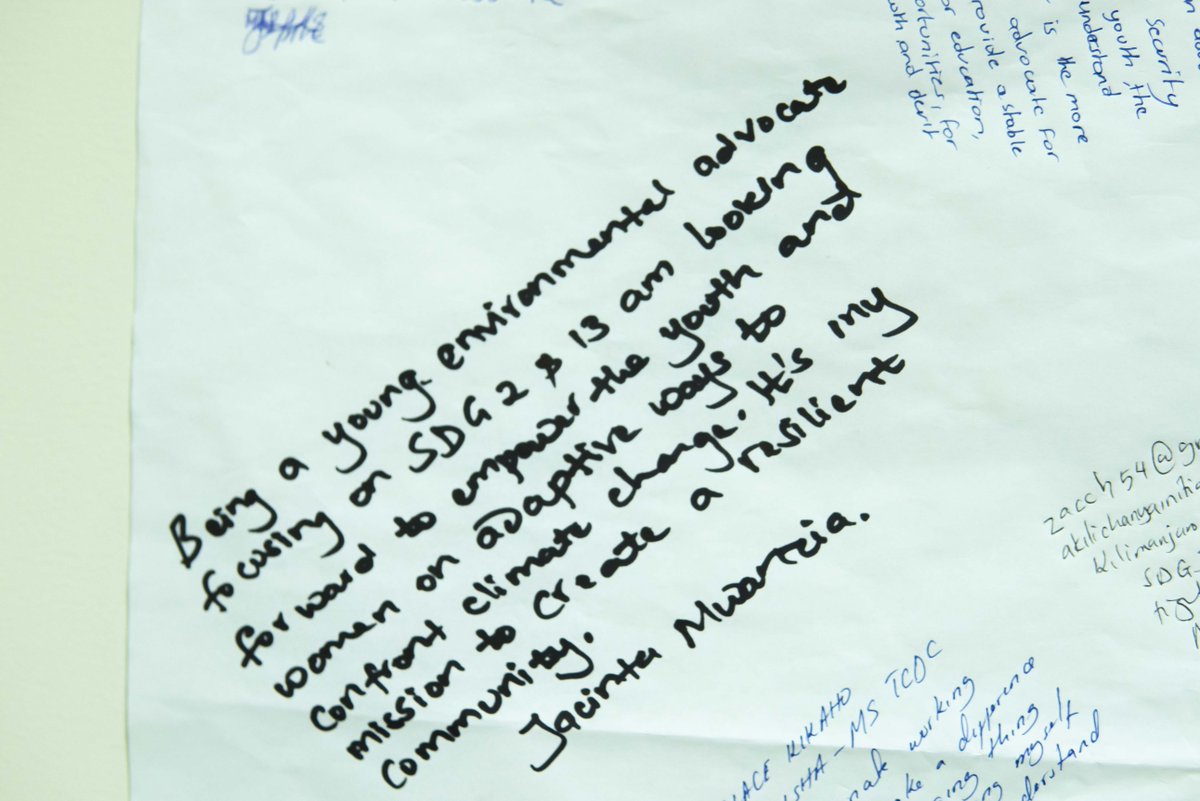 Being a young environmental advocate
focusing on SDG 2 & 13 am looking
forward to empower the youth and
women on adaptive ways to
confront climate change. It's my
mission to create a resilient
community.
Jacinta Mwartzia.
security
youth, the
understand
is the more
advocate for
provide a stable
or education,
for
and
zacch54@g
Kilimanjaro
SDG
KIKAHO
MS TCDC
working
a difference
thing
myself